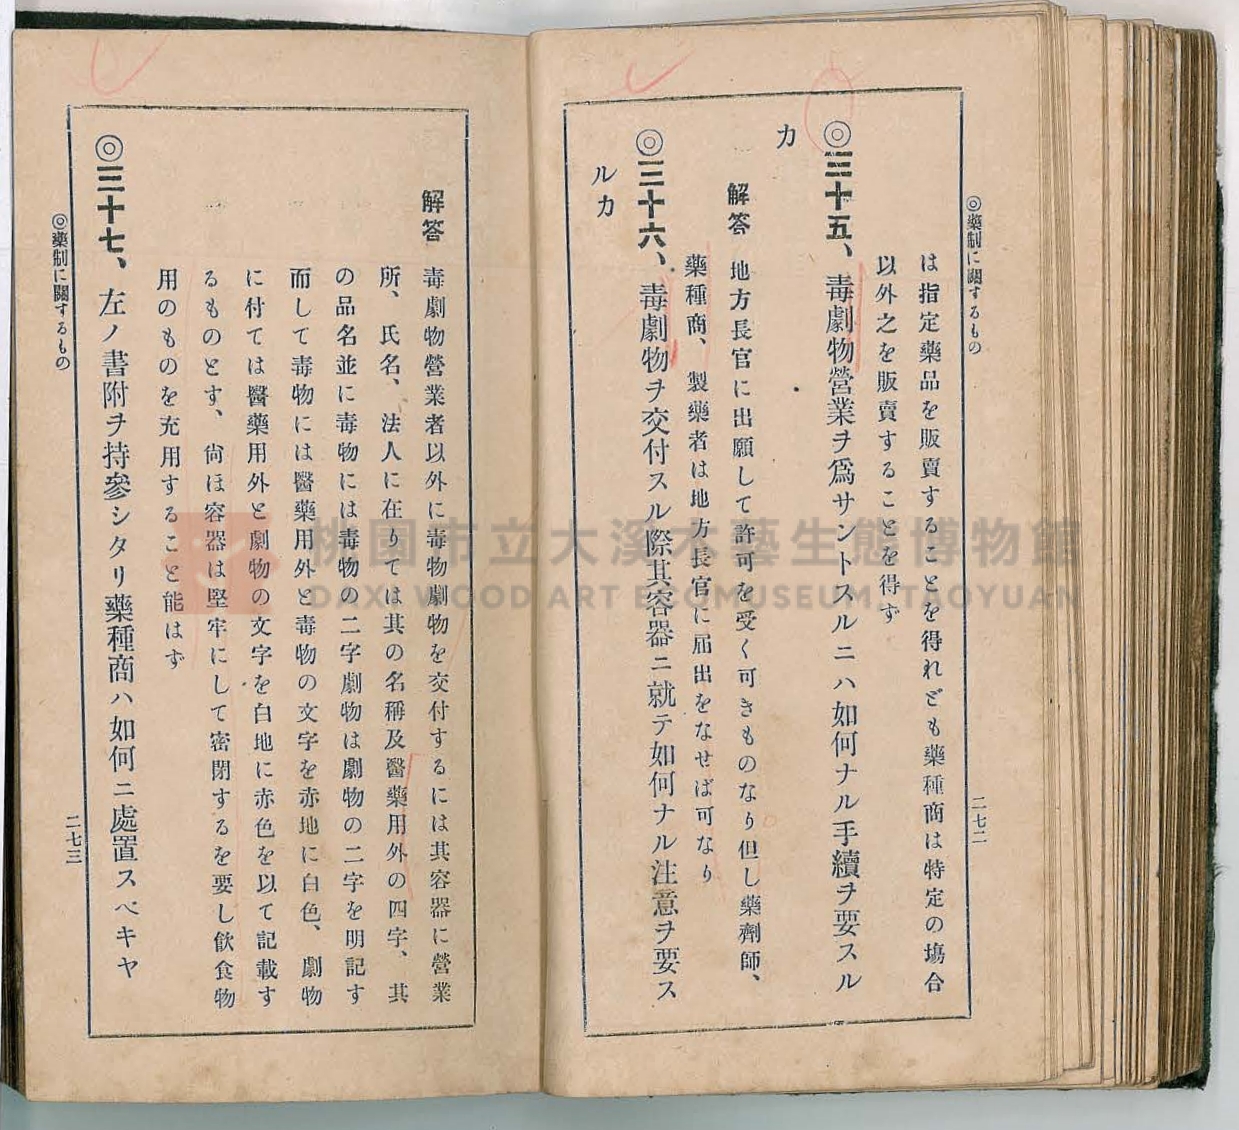 ◎藥制に關するもの
二七二
は指定藥品を販賣することを得れども藥種商は特定の塲合
以外之を販賣することを得ず
◎三十五、毒劇物營業ヲ爲サントスルニハ如何ナル手續ヲ要スル
カ
解答 地方長官に出願して許可を受く可きものなり但し藥劑師、
藥種商、製藥者は地方長官に屆出をなせば可なり
◎三十六、毒劇物ヲ交付スル際其容器ニ就テ如何ナル注意ヲ要ス
ルカ
解答 毒劇物營業者以外に毒物劇物を交付するには其容器に營業
所、氏名、法人に在りては其の名稱及醫藥用外の四字、其
の品名並に毒物には毒物の二字劇物は劇物の二字を明記す
而して毒物には醫藥用外と毒物の文字を赤地に白色、劇物
に付ては醫藥用外と劇物の文字を白地に赤色を以て記載す
るものとす、尙ほ容器は堅牢にして密閉するを要し飮食物
用のものを充用すること能はず
◎三十七、左ノ書附ヲ持參シタリ藥種商ハ如何ニ處置スベキヤ
◎藥制に關するもの
二七三
桃園市立大溪木藝生態博物館
DAXI WOOD ART ECOMUSEUM, TAOYUAN